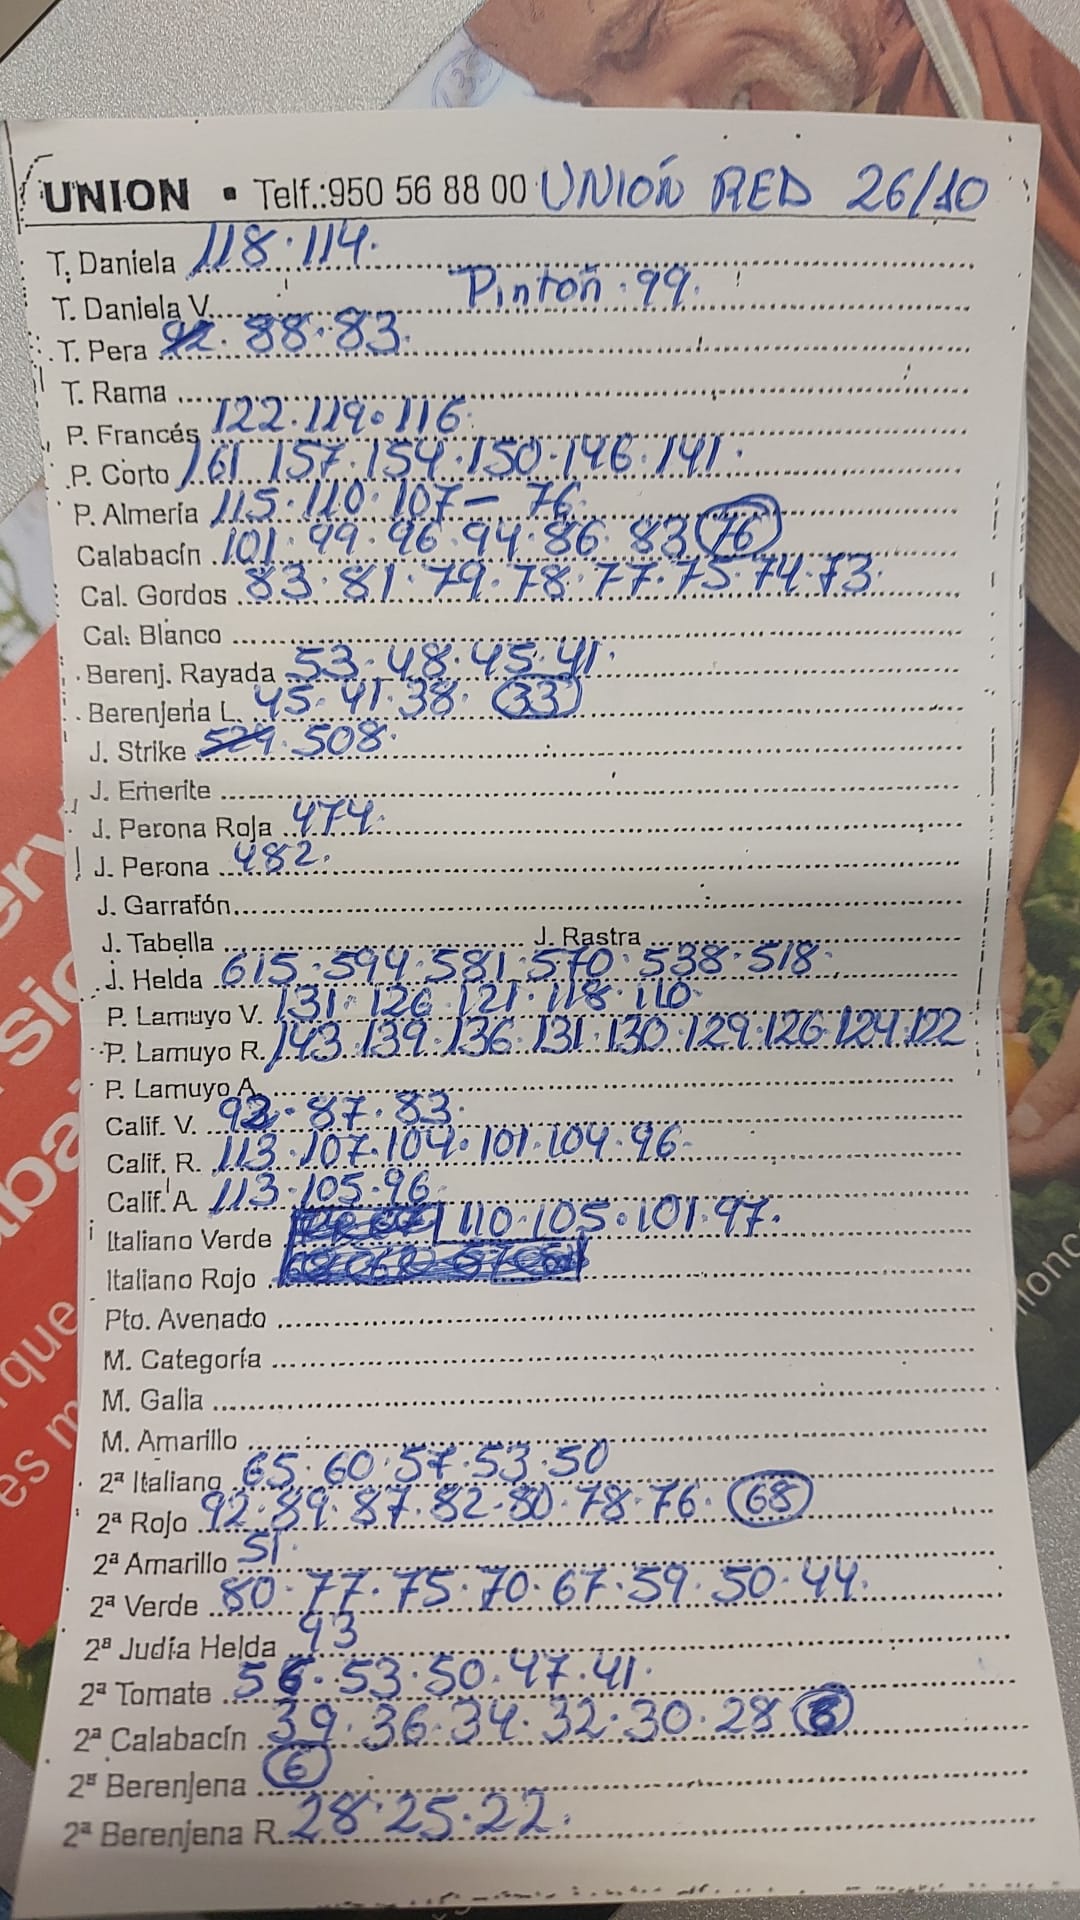 UNION • Telf.:950 56 88 00 UNIÓN RED 26/10
T. Daniela 118·114·
T. Daniela V. Pintón·99·
T. Pera 92·88·83·
T. Rama
P. Francés 122·119·116·
P. Corto 161 157·154·150·146·141·
P. Almería 115·110·107— 76·
Calabacín 101·99·96·94·86·83 76
Cal. Gordos 83·81·79·78·77·75·74·73·
Cal. Blanco
Berenj. Rayada 53·48·45·41·
Berenjena L. 45·41·38· 33
J. Strike 529·508·
J. Emerite
J. Perona Roja 474·
J. Perona 482·
J. Garrafón
J. Tabella J. Rastra
J. Helda 615·594·581·570·538·518·
P. Lamuyo V. 131·126·121·118·110·
P. Lamuyo R. 143·139·136·131·130·129·126·124·122
P. Lamuyo A.
Calif. V. 92·87·83·
Calif. R. 113·107·104·101·104·96·
Calif. A. 113·105·96·
Italiano Verde 110·105·101·97·
Italiano Rojo
Pto. Avenado
M. Categoría
M. Galia
M. Amarillo
2ª Italiano 65·60·57·53·50
2ª Rojo 92·89·87·82·80·78·76· 68
2ª Amarillo 51·
2ª Verde 80·77·75·70·67·59·50·44·
2ª Judía Helda 93
2ª Tomate 56·53·50·47·41·
2ª Calabacín 39·36·34·32·30·28
2ª Berenjena 6
2ª Berenjena R. 28·25·22·